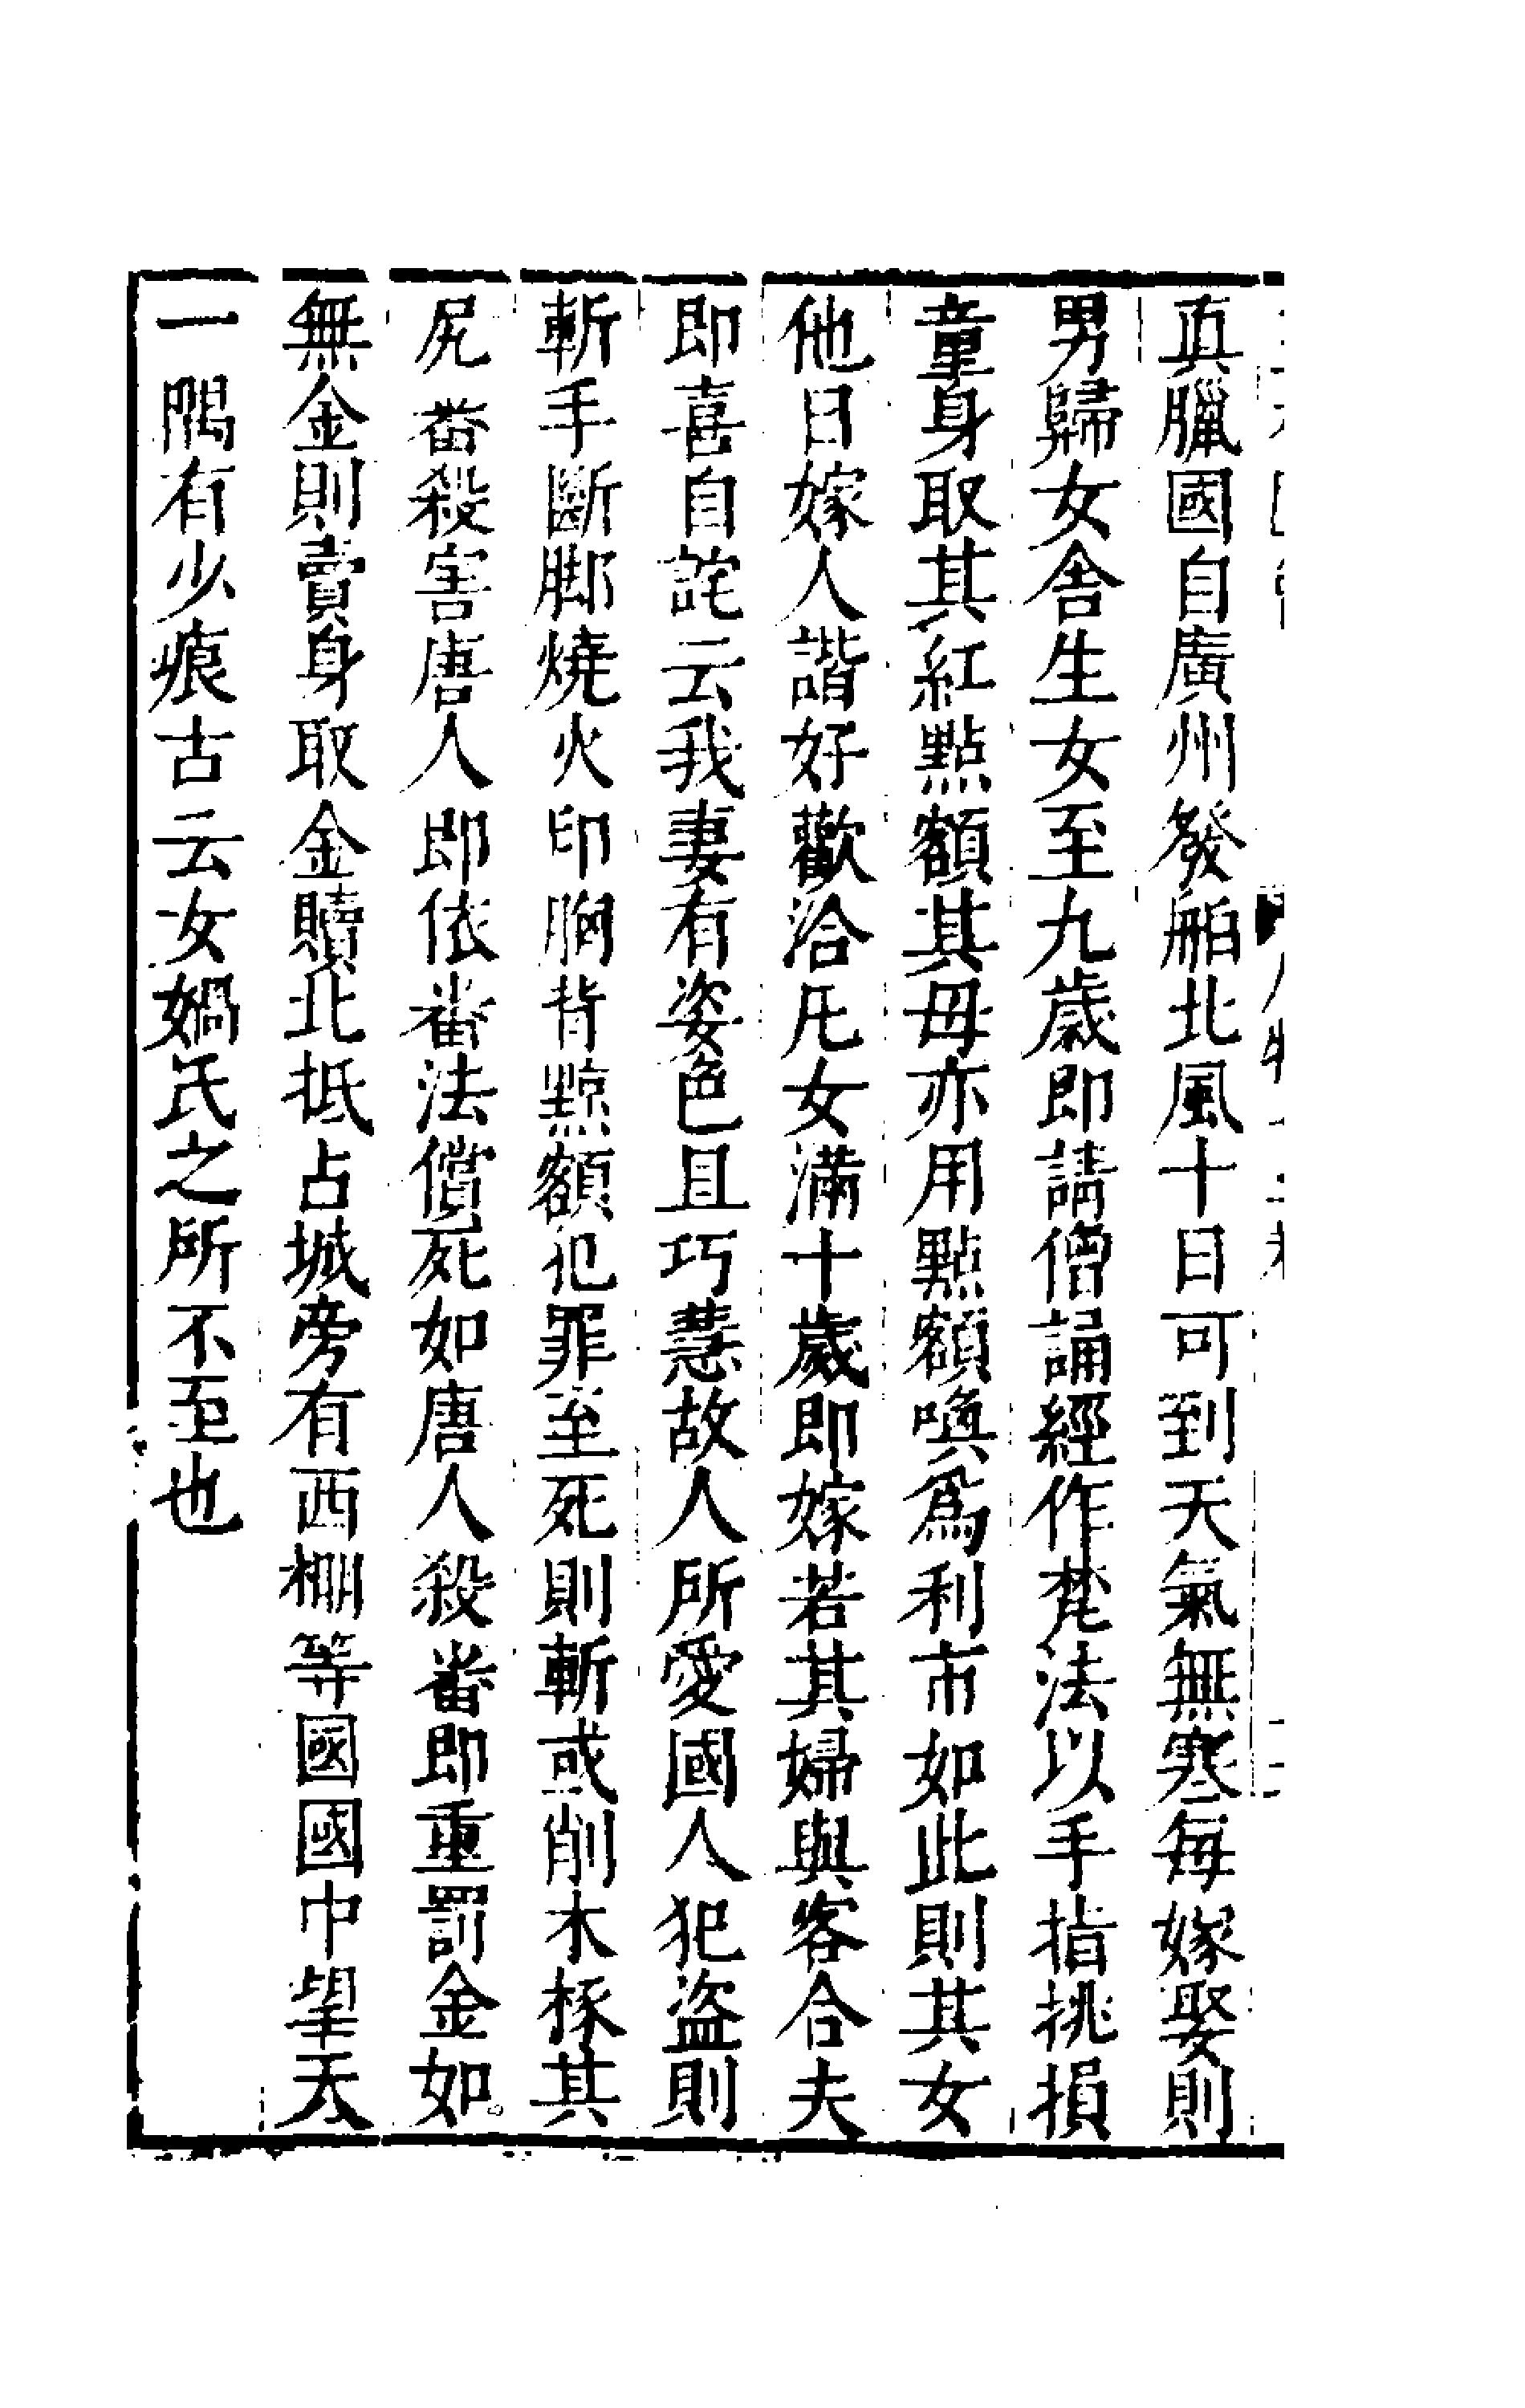 真臘國自廣州發舶北風十日可到天氣無寒每嫁娶則
男歸女舍生女至九歲即請僧誦經作梵法以手指挑損
童身取其紅點額其母亦用點額喚爲利市如此則其女
他日嫁人諧好歡洽凡女滿十歲即嫁若其婦與客合夫
即喜自詫云我妻有姿色且巧慧故人所愛國人犯盜則
斬手斷脚燒火印胸背黥額犯罪至死則斬或削木椓其
尻番殺害唐人即依番法償死如唐人殺番即重罰金如
無金則賣身取金贖北抵占城旁有西棚等國國中望天
一隅有少痕古云女媧氏之所不至也